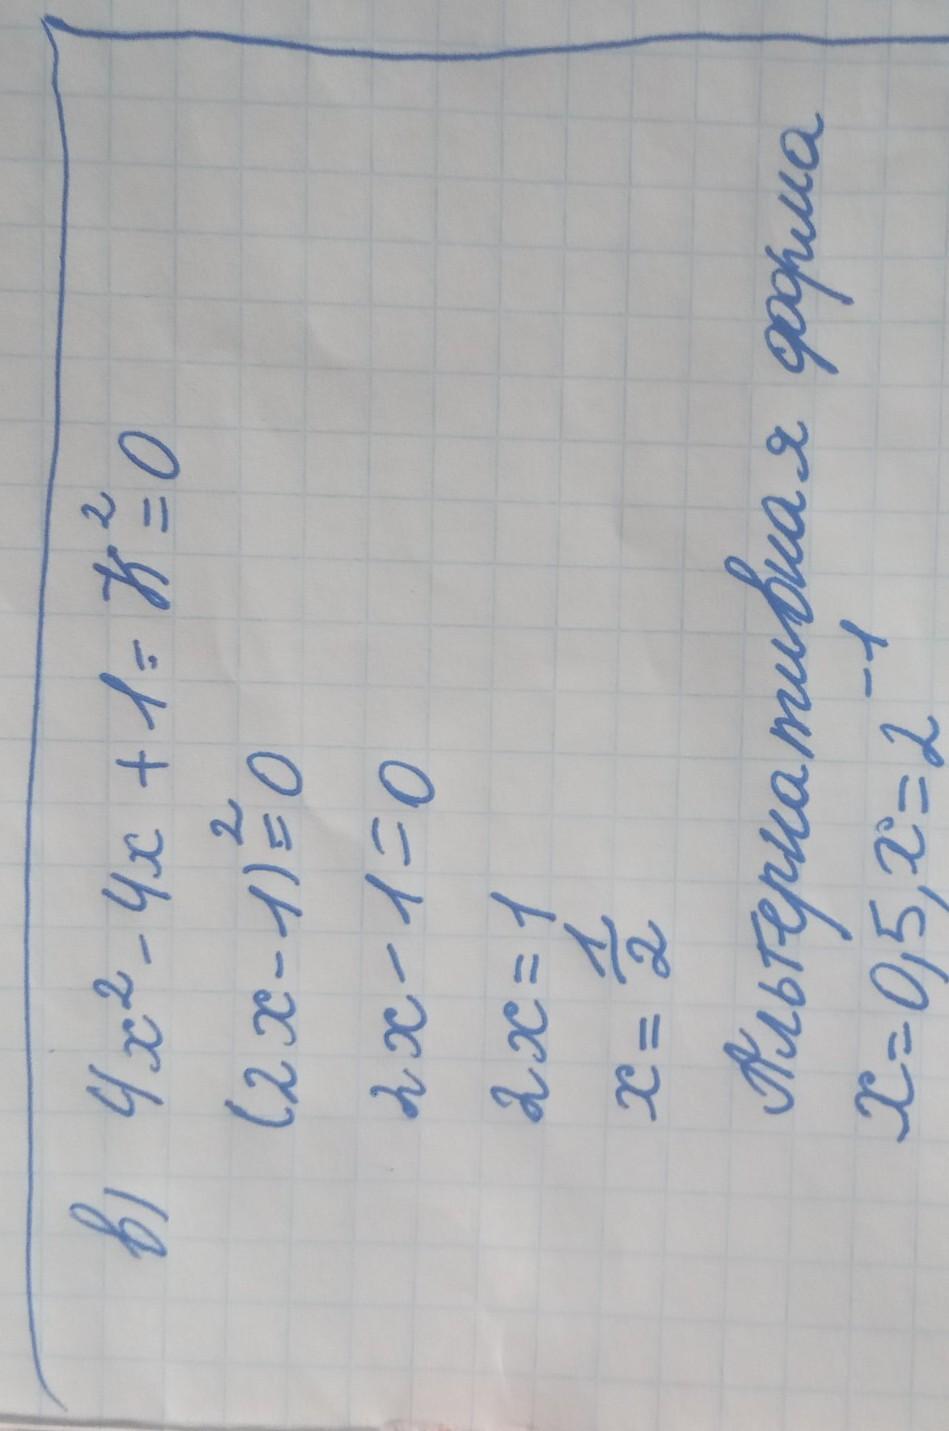 в) 4x² - 4x + 1 = 0
(2x - 1)² = 0
2x - 1 = 0
2x = 1
x = 1/2
Альтернативная форма
x = 0,5, x = 2⁻¹